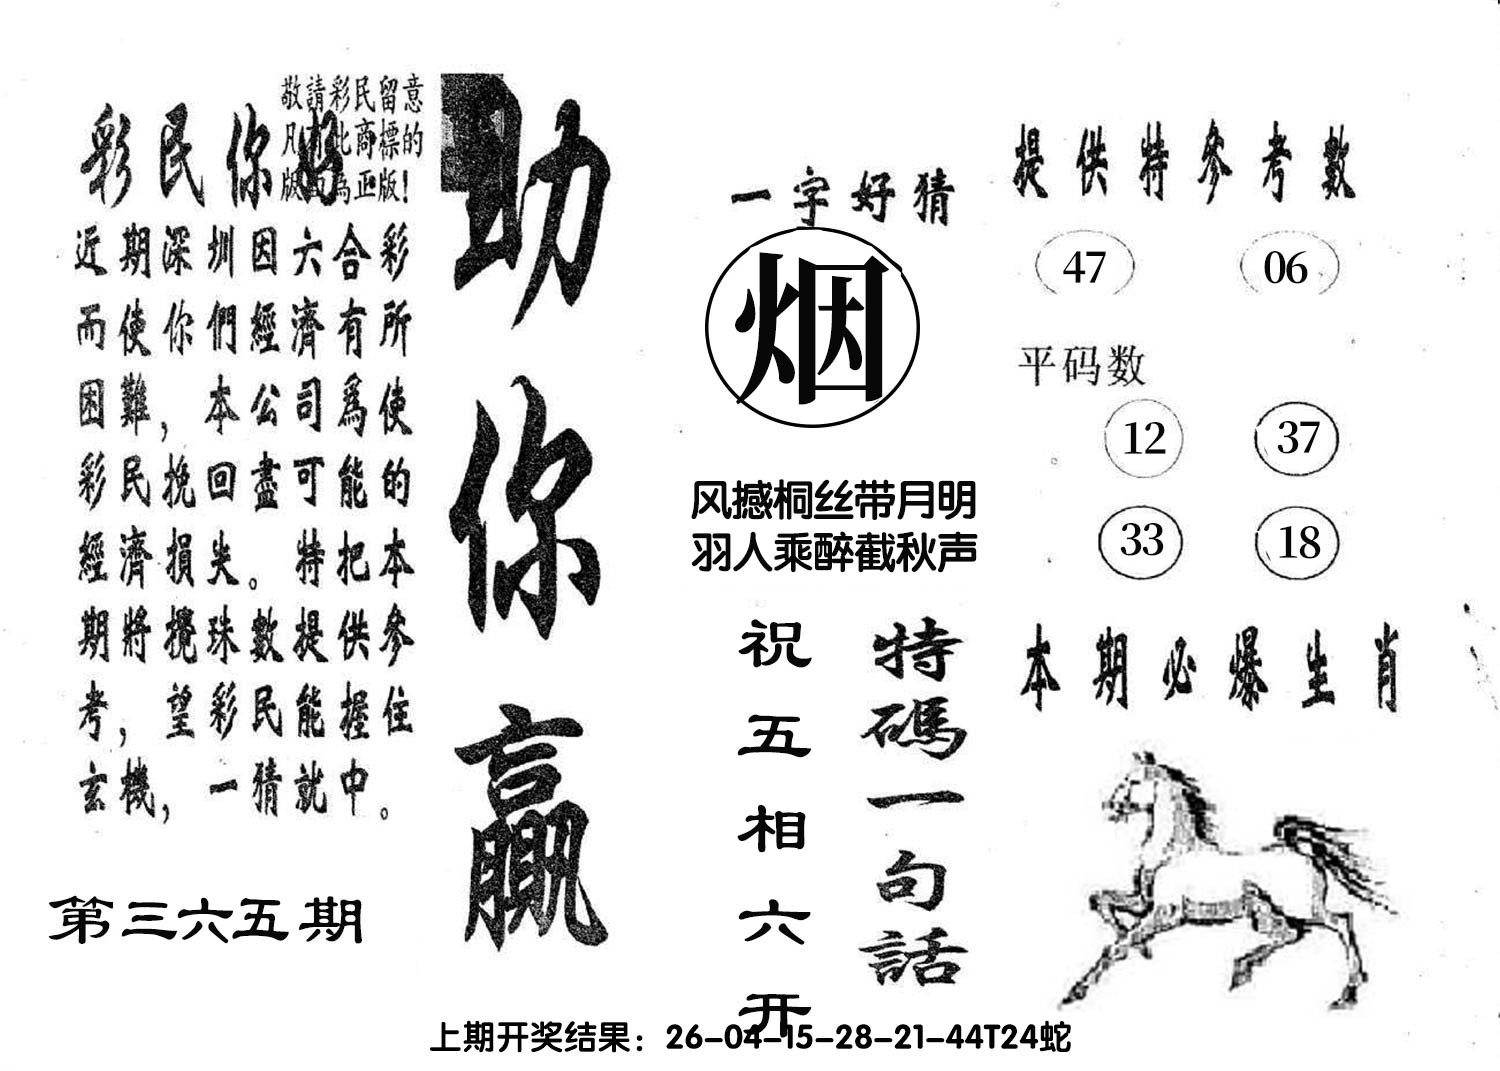 敬請彩民留意
凡有此商標的
版面為正版!
彩民你好
近期深圳因六合彩
而使你們經濟有所
困難，本公司爲使
彩民挽回盡可能的
經濟損失。特把本
期將攪珠數提供參
考，望彩民能握住
玄機，一猜就中。
第三六五期
助你赢
一字好猜
烟
风撼桐丝带月明
羽人乘醉截秋声
特碼一句話
祝五相六开
提供特參考數
47 06
平码数
12 37
33 18
本期必爆生肖
上期开奖结果：26-04-15-28-21-44T24蛇